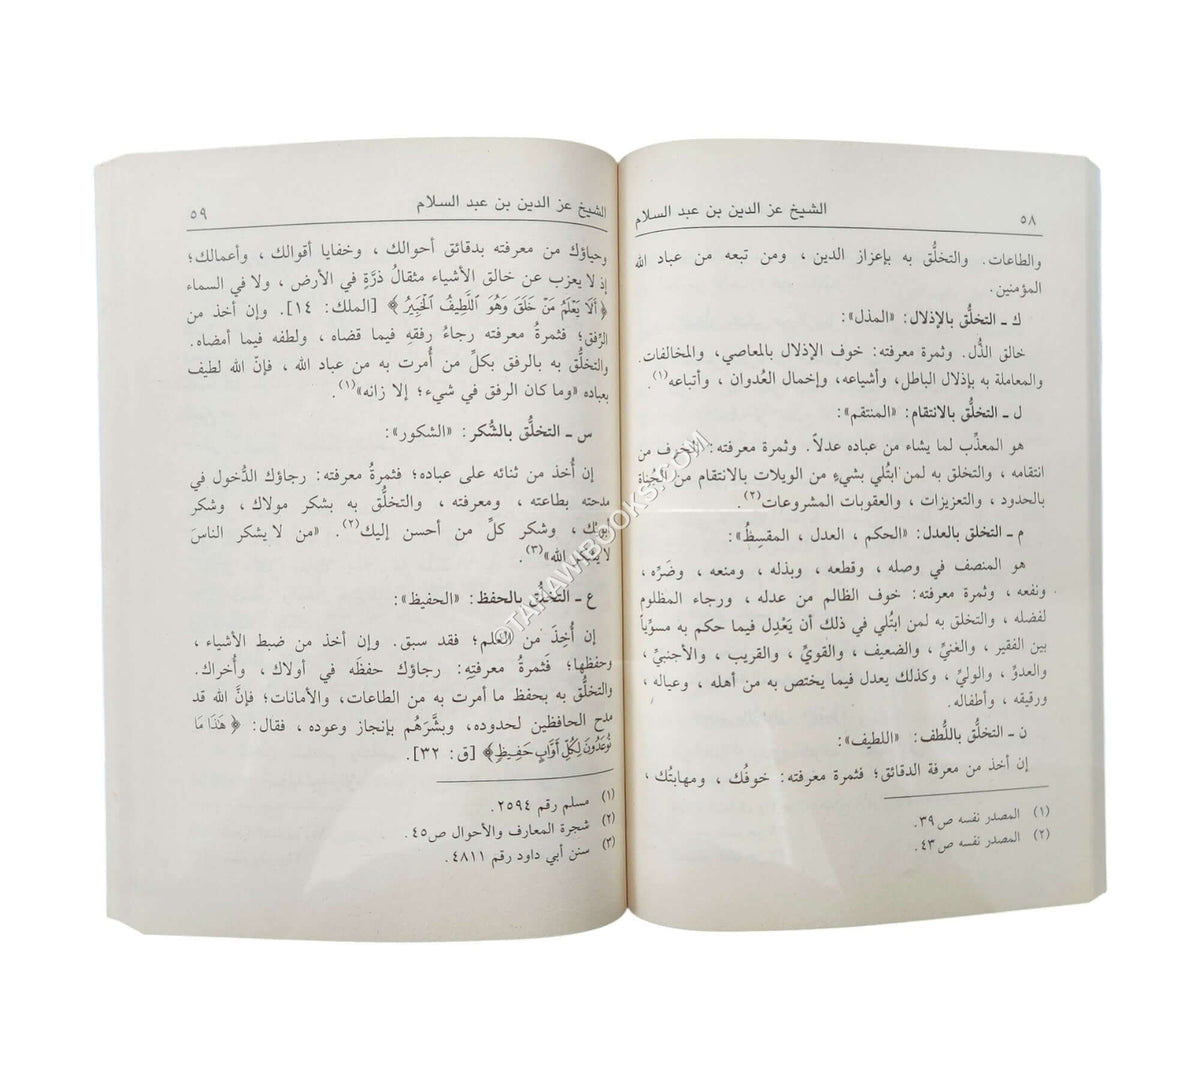 ٥٨ الشيخ عز الدين بن عبد السلام
والطاعات. والتخلُّق به بإعزاز الدين ، ومن تبعه من عباد الله
المؤمنين.
ك ـ التخلُّق بالإذلال: «المذل»:
خالق الذُّل. وثمرة معرفته: خوف الإذلال بالمعاصي، والمخالفات.
والمعاملة به بإذلال الباطل، وأشياعه، وإخمال العُدوان ، وأتباعه(١).
ل ـ التخلُّق بالانتقام: «المنتقم»:
هو المعذِّب لما يشاء من عباده عدلاً. وثمرة معرفته: الخوف من
انتقامه ، والتخلق به لمن ابتُلي بشيءٍ من الويلات بالانتقام من الجُناة
بالحدود ، والتعزيزات ، والعقوبات المشروعات(٢).
م ـ التخلق بالعدل: «الحكم ، العدل ، المقسِطُ»:
هو المنصف في وصله ، وقطعه ، وبذله ، ومنعه ، وضَرِّه ،
ونفعه ، وثمرة معرفته: خوف الظالم من عدله ، ورجاء المظلوم
لفضله ، والتخلق به لمن ابتُلي في ذلك أن يَعْدِل فيما حكم به مسوِّياً
بين الفقير ، والغنيِّ ، والضعيف ، والقويِّ ، والقريب ، والأجنبيِّ ،
والعدوِّ ، والوليِّ ، وكذلك يعدل فيما يختص به من أهله ، وعياله ،
ورقيقه ، وأطفاله.
ن ـ التخلُّق باللُّطف: «اللطيف»:
إن أخذ من معرفة الدقائق؛ فثمرة معرفته: خوفُك ، ومهابتُك ،
(١) المصدر نفسه ص٣٩.
(٢) المصدر نفسه ص٤٣.
الشيخ عز الدين بن عبد السلام ٥٩
وحياؤك من معرفته بدقائق أحوالك ، وخفايا أقوالك ، وأعمالك؛
إذ لا يعزب عن خالق الأشياء مثقالُ ذرَّةٍ في الأرض ، ولا في السماء
﴿أَلَا يَعْلَمُ مَنْ خَلَقَ وَهُوَ اللَّطِيفُ الْخَبِيرُ﴾ [الملك: ١٤]. وإن أخذ من
الرِّفق؛ فثمرةُ معرفته رجاءُ رفقِهِ فيما قضاه ، ولطفه فيما أمضاه.
والتخلُّق به بالرفق بكلِّ من أُمرت به من عباد الله ، فإنّ الله لطيف
بعباده «وما كان الرفق في شيء؛ إلا زانه»(١).
س ـ التخلُّق بالشُّكر: «الشكور»:
إن أُخذ من ثنائه على عباده؛ فثمرةُ معرفته: رجاؤك الدُّخول في
مدحته بطاعته ، ومعرفته ، والتخلُّق به بشكر مولاك ، وشكر
، وشكر كلِّ من أحسن إليك(٢). «من لا يشكر الناسَ
لا الله»(٣).
ع ـ التخلُّق بالحفظ: «الحفيظ»:
إن أُخِذَ من العلم؛ فقد سبق. وإن أخذ من ضبط الأشياء ،
وحفظها؛ فَثمرةُ معرفتِهِ: رجاؤك حفظَه في أولاك ، وأُخراك.
والتخلُّق به بحفظ ما أمرت به من الطاعات، والأمانات؛ فإنَّ الله قد
مدح الحافظين لحدوده، وبشَّرَهُم بإنجاز وعوده ، فقال: ﴿ هَٰذَا مَا
تُوعَدُونَ لِكُلِّ أَوَّابٍ حَفِيظٍ﴾ [ق: ٣٢].
(١) مسلم رقم ٢٥٩٤.
(٢) شجرة المعارف والأحوال ص٤٥.
(٣) سنن أبي داود رقم ٤٨١١.
OTAHAWIBOOKS.COM